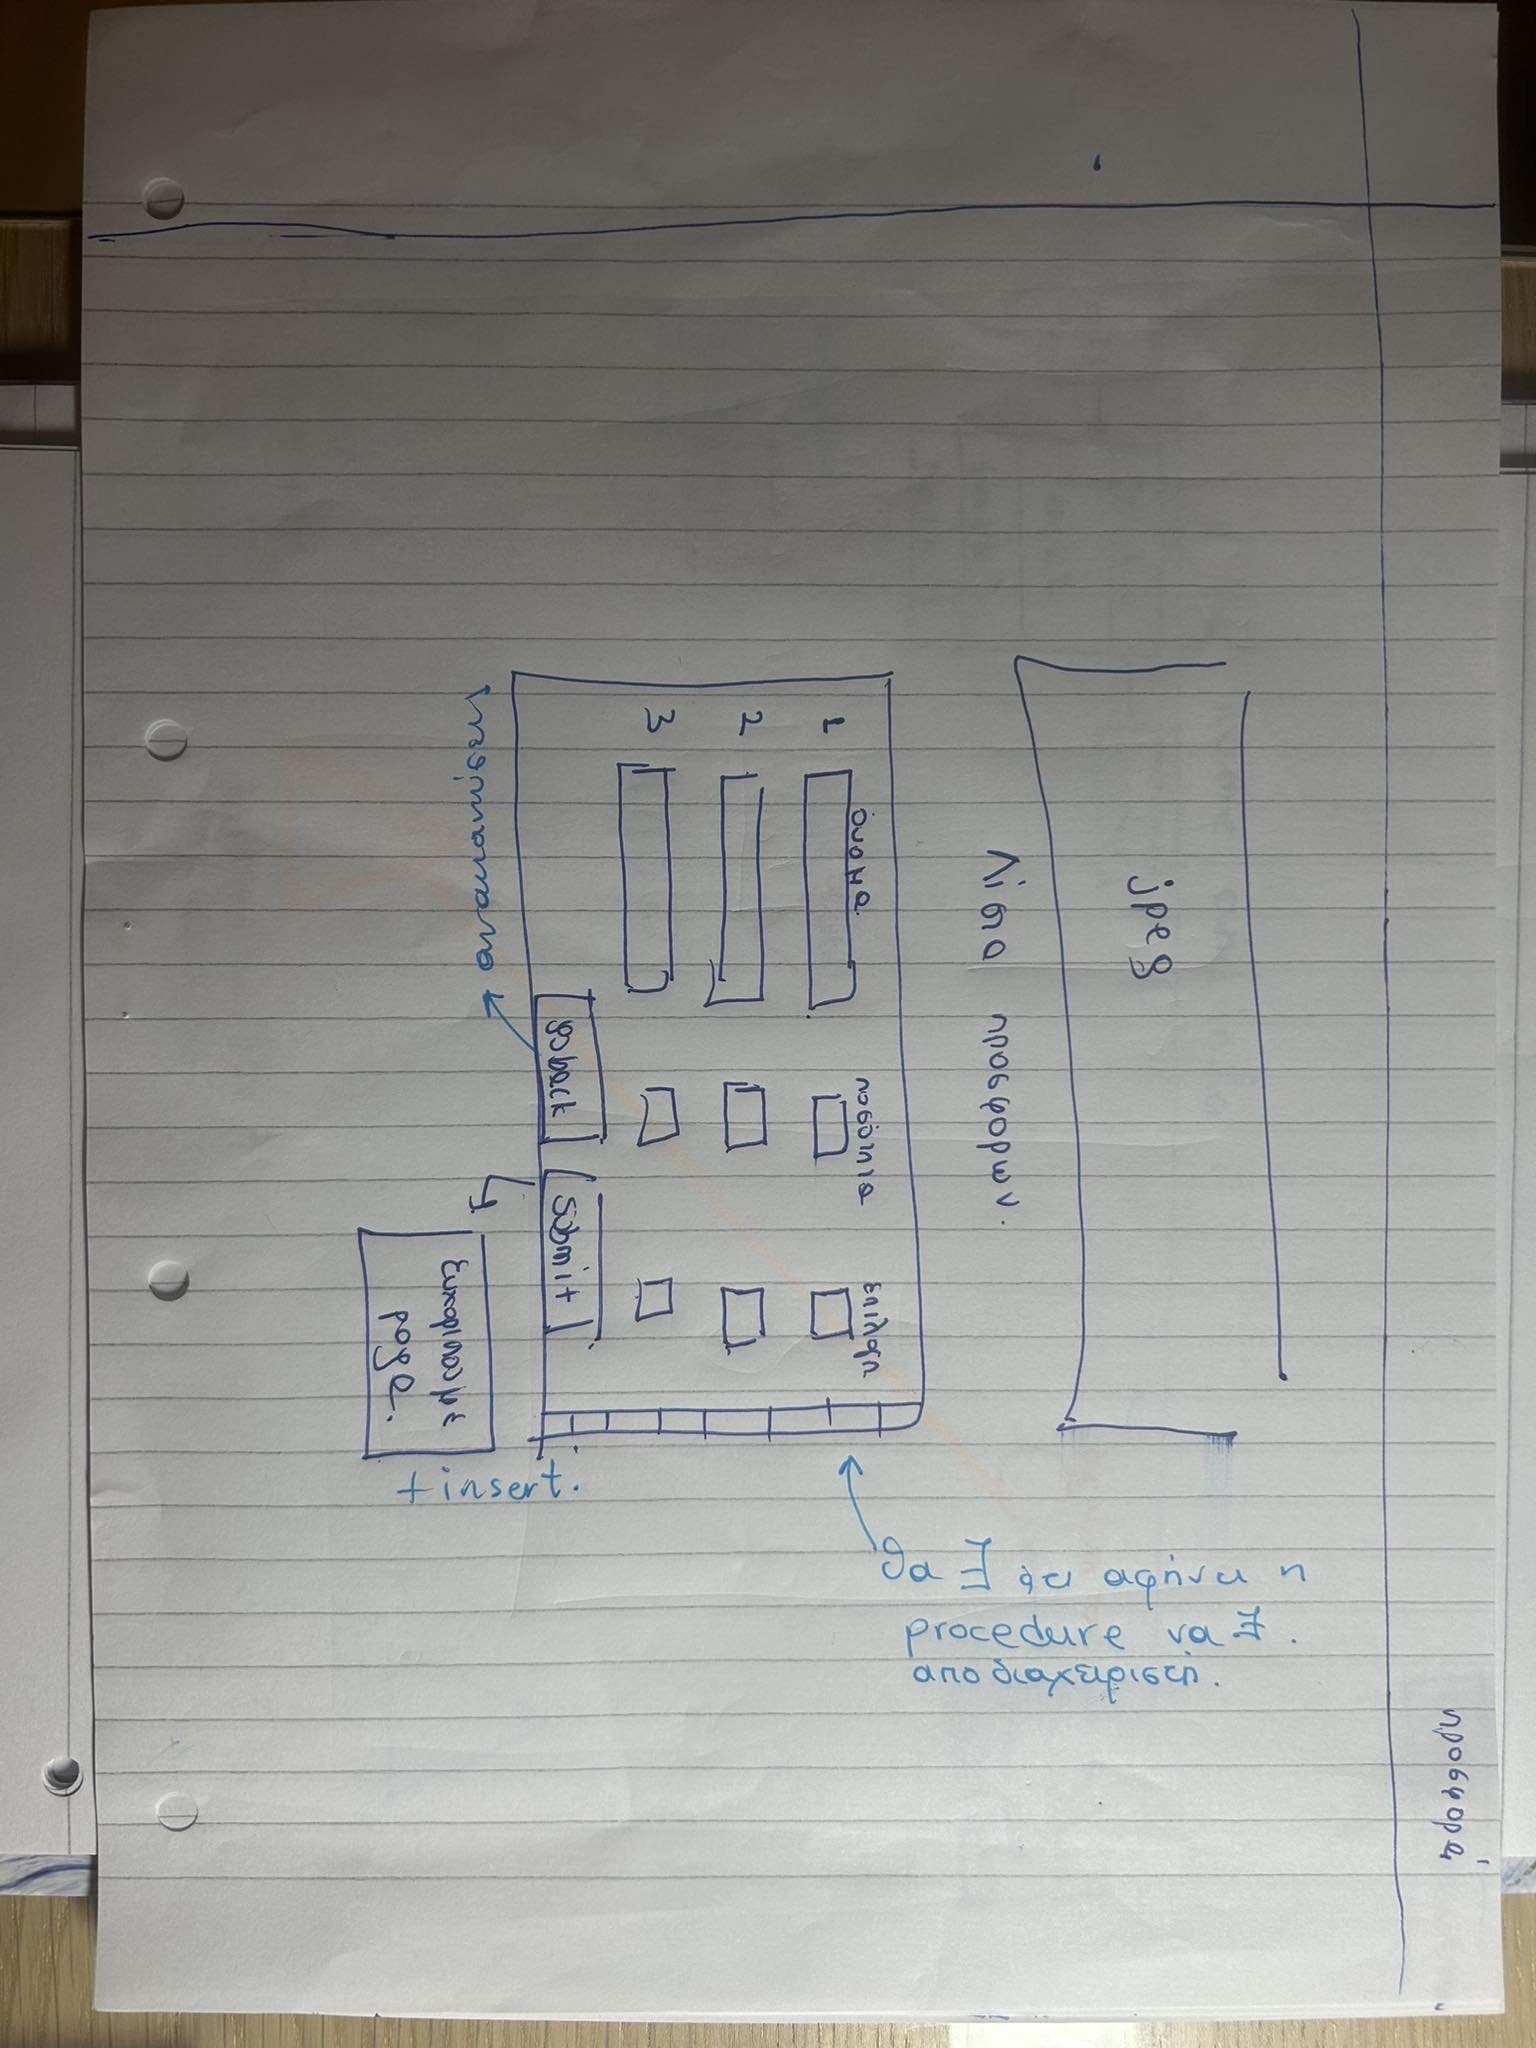 προσφορά
jpeg
Λίστα προσφορών.
όνομα ποσότητα επιλογη
1
2
3
goback submit
ευχαριστουμε
page.
+ insert.
θα ∃ αφήνει η
procedure να ∃
αποδιαχείριση.